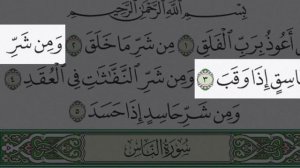 بِسْمِ اللَّهِ الرَّحْمَٰنِ الرَّحِيمِ
أَعُوذُ بِرَبِّ الْفَلَقِ ١ مِن شَرِّ مَا خَلَقَ ٢ وَمِن شَرِّ
غَاسِقٍ إِذَا وَقَبَ ٣ وَمِن شَرِّ النَّفَّاثَاتِ فِي الْعُقَدِ ٤
وَمِن شَرِّ حَاسِدٍ إِذَا حَسَدَ ٥
سُورَةُ النَّاسِ